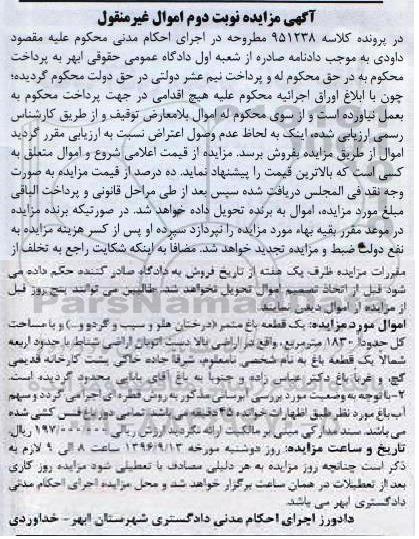 آگهی مزایده نوبت دوم اموال غیرمنقول
در پرونده کلاسه ۹۵۱۲۳۸ مطروحه در اجرای احکام مدنی محکوم علیه مقصود
داودی به موجب دادنامه صادره از شعبه اول دادگاه عمومی حقوقی ابهر به پرداخت
محکوم به در حق محکوم له و پرداخت نیم عشر دولتی در حق دولت محکوم گردیده؛
چون با ابلاغ اوراق اجرائیه محکوم علیه هیچ اقدامی در جهت پرداخت محکوم به
بعمل نیاورده است و از سوی محکوم له اموال بلامعارض توقیف و از طریق کارشناس
رسمی ارزیابی شده، اینک به لحاظ عدم وصول اعتراض نسبت به ارزیابی مقرر گردید
اموال از طریق مزایده بفروش برسد. مزایده از قیمت اعلامی شروع و اموال متعلق به
کسی است که بالاترین قیمت را پیشنهاد نماید. ده درصد از قیمت مزایده به صورت
وجه نقد فی المجلس دریافت شده سپس بعد از طی مراحل قانونی و پرداخت الباقی
مبلغ مورد مزایده، اموال به برنده تحویل داده خواهد شد. در صورتیکه برنده مزایده
در موعد مقرر بقیه بهاء مورد مزایده را نپردازد سپرده او پس از کسر هزینه مزایده به
نفع دولت ضبط و مزایده تجدید خواهد شد. مضافا به اینکه شکایت راجع به تخلف از
مقررات مزایده ظرف یک هفته از تاریخ فروش به دادگاه صادر کننده حکم داده می
شود قبل از اتخاذ تصمیم اموال تحویل نخواهد شد. طالبین می توانند پنج روز قبل
از مزایده از اموال دیدن نمایند.
اموال مورد مزایده: یک قطعه باغ مثمر (درختان هلو و سیب و گردو و...) و با مساحت
کل حدودا ۱۸۳۰ مترمربع، واقع در اراضی بالا دست اتوبان اراضی شناط با حدود اربعه
شمالا یک قطعه باغ به نام شخصی نامعلوم، شرقا جاده خاکی پشت کارخانه قدیمی
گچ، و غربا باغ دکتر عباس زاده و جنوبا به باغ آقای بابایی محدود گردیده است.
۲-با توجه به وضعیت مورد بررسی آبرسانی مذکور به روش قطره ای اجرا می گردد و سهم
آب باغ مورد نظر طبق اظهارات خوانده ۴۵ دقیقه می باشد. تمامی دور باغ فنس کشی شده
می باشد. سند مدارکی مبنی بر مالکیت ارائه نگردید ارزش ریالی ریال.
تاریخ و ساعت مزایده: روز دوشنبه مورخه ۱۳۹۶/۹/۱۳ ساعت ۸ الی ۹ لازم به
ذکر است چنانچه روز مزایده به هر دلیلی مصادف با تعطیلی شود مزایده روز کاری
بعد از تعطیلات در همان ساعت برگزار خواهد شد و محل مزایده اجرای احکام مدنی
دادگستری ابهر می باشد.
دادورز اجرای احکام مدنی دادگستری شهرستان ابهر- خداوردی
ParsNamadData